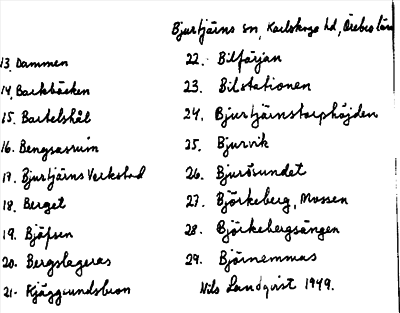 Bjurtjärns sn, Karlskoga hd, Örebro län
13. Dammen
14. Backbäcken
15. Bartelshål
16. Bengsasruin
17. Bjurtjärns Verkstad
18. Berget
19. Bjöfsen
20. Bergslageras
21.
22. Bilfärjan
23. Bilstationen
24. Bjurtjärnstorphöjden
25. Bjurvik
26. Bjurösundet
27. Björkeberg, Mossen
28. Björkebergsängen
29. Björnemmas
Nils Landqvist 1949.